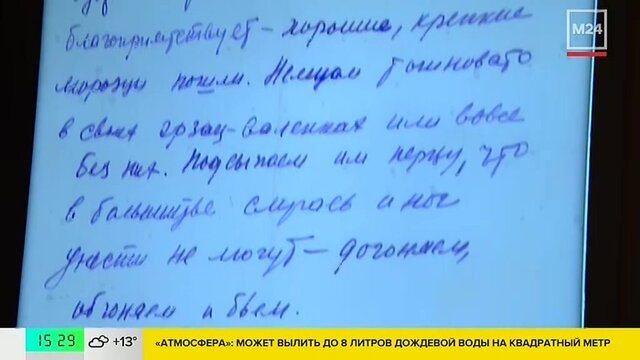 М24
благоприятствует – хорошие, крепкие
морозцы пошли. Немцам тошновато
в своих эрзац-валенках или вовсе
без них. Подсыпаем им перцу, что
в большинстве с и ног
унести не могут – догоняем,
обгоняем и бьем.
15 29 +13° «АТМОСФЕРА»: МОЖЕТ ВЫЛИТЬ ДО 8 ЛИТРОВ ДОЖДЕВОЙ ВОДЫ НА КВАДРАТНЫЙ МЕТР